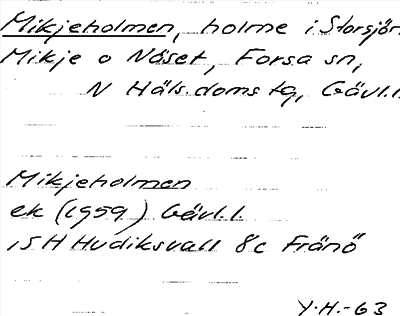 Mikjeholmen, holme i Storsjön
Mikje o Näset, Forsa sn,
N Häls. doms tg, Gävl.l.
Mikjeholmen
ek (1959) Gävl.l.
ISH Hudiksvall 8c Fränö
Y.H.-63